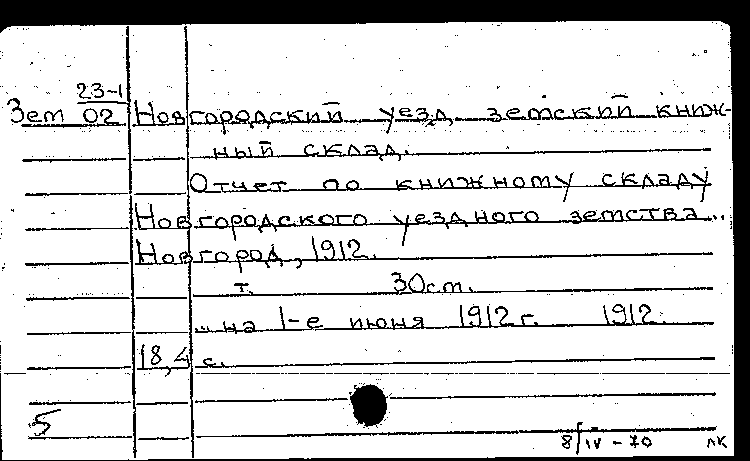 23-1
Зем 02 Новгородский уезд. земский книж-
ный склад.
Отчет по книжному складу
Новгородского уездного земства...
Новгород, 1912.
т. 30см.
...на 1-е июня 1912г. 1912.
18,4 с.
5
8/IV-70 лк